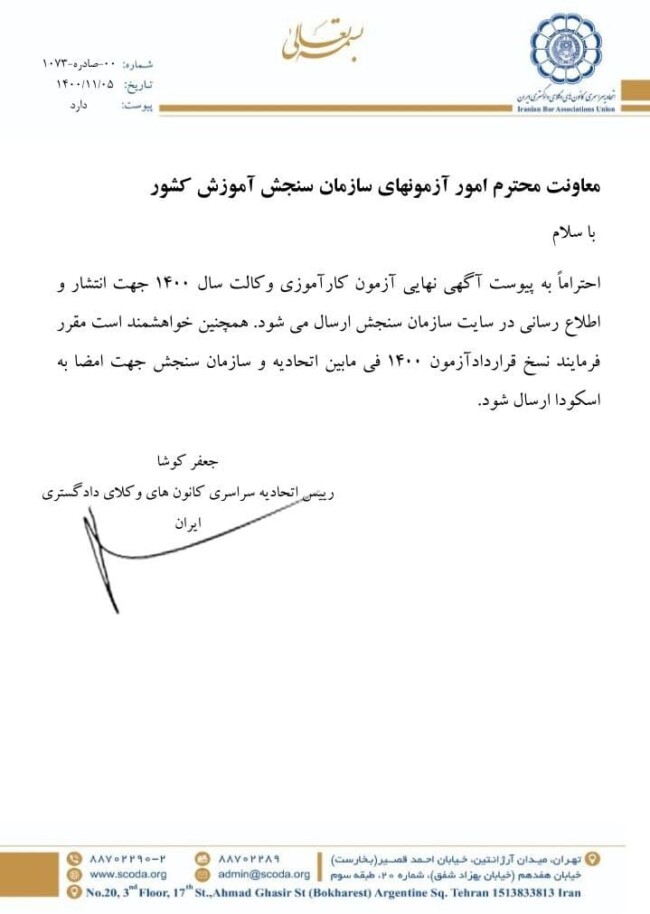 بسمه تعالی
شماره: ۰۰-صادره-۱۰۷۳
تاریخ: ۱۴۰۰/۱۱/۰۵
پیوست: دارد
اتحادیه سراسری کانون های وکلای دادگستری ایران
Iranian Bar Associations Union
معاونت محترم امور آزمونهای سازمان سنجش آموزش کشور
با سلام
احتراماً به پیوست آگهی نهایی آزمون کارآموزی وکالت سال ۱۴۰۰ جهت انتشار و
اطلاع رسانی در سایت سازمان سنجش ارسال می شود. همچنین خواهشمند است مقرر
فرمایند نسخ قراردادآزمون ۱۴۰۰ فی مابین اتحادیه و سازمان سنجش جهت امضا به
اسکودا ارسال شود.
جعفر کوشا
رییس اتحادیه سراسری کانون های وکلای دادگستری
ایران
تهران، میدان آرژانتین، خیابان احمد قصیر(بخارست)
خیابان هفدهم (خیابان بهزاد شفق)، شماره ۲۰، طبقه سوم
۸۸۷۰۲۲۸۹
۸۸۷۰۲۲۹۰-۲
admin@scoda.org
www.scoda.org
No.20, 3rd Floor, 17th St.,Ahmad Ghasir St (Bokharest) Argentine Sq. Tehran 1513833813 Iran